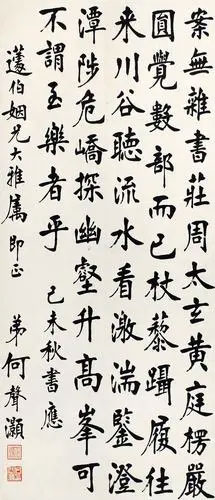 案無雜書莊周太玄黃庭楞嚴
圓覺數部而已杖藜躡履往
来川谷聽流水看激湍鑒澄
潭陟危嶠探幽壑升高峯可
不謂至樂者乎 己未秋書應
蘧伯姻兄大雅属 即正 弟何聲灝